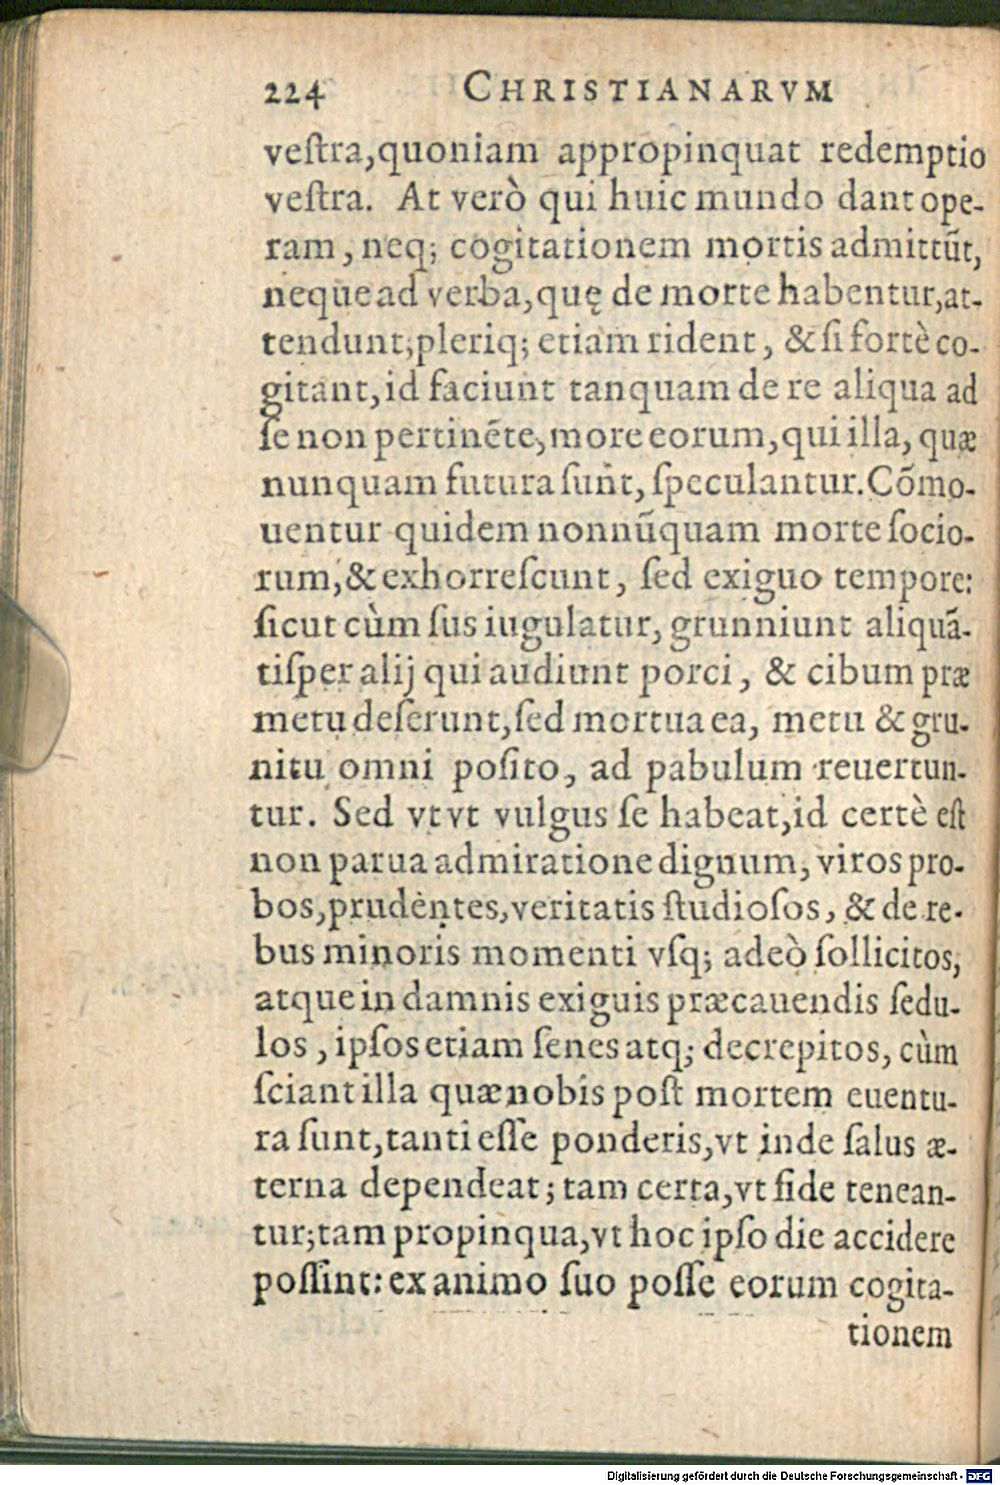 224 CHRISTIANARVM
veſtra,quoniam appropinquat redemptio
veſtra. At verò qui huic mundo dant ope-
ram, neq; cogitationem mortis admittũt,
neque ad verba,quę de morte habentur,at-
tendunt;pleriq; etiam rident, & ſi fortè co-
gitant,id faciunt tanquam de re aliqua ad
ſe non pertinẽte,more eorum,qui illa, quæ
nunquam futura ſunt, ſpeculantur.Cõmo-
uentur quidem nonnũquam morte ſocio-
rum,& exhorreſcunt, ſed exiguo tempore:
ſicut cùm ſus iugulatur, grunniunt aliquã-
tiſper alij qui audiunt porci, & cibum præ
metu deſerunt,ſed mortua ea, metu & gru-
nitu omni poſito, ad pabulum reuertun-
tur. Sed vt vt vulgus ſe habeat,id certè eſt
non parua admiratione dignum, viros pro-
bos,prudentes,veritatis ſtudioſos, & de re-
bus minoris momenti vſq; adeò ſollicitos,
atque in damnis exiguis præcauendis ſedu-
los, ipſos etiam ſenes atq; decrepitos, cùm
ſciant illa quæ nobis poſt mortem euentu-
ra ſunt,tanti eſſe ponderis,vt inde ſalus æ-
terna dependeat; tam certa,vt fide tenean-
tur;tam propinqua,vt hoc ipſo die accidere
poſſint: ex animo ſuo poſſe eorum cogita-
tionem
Digitalisierung gefördert durch die Deutsche Forschungsgemeinschaft - DFG